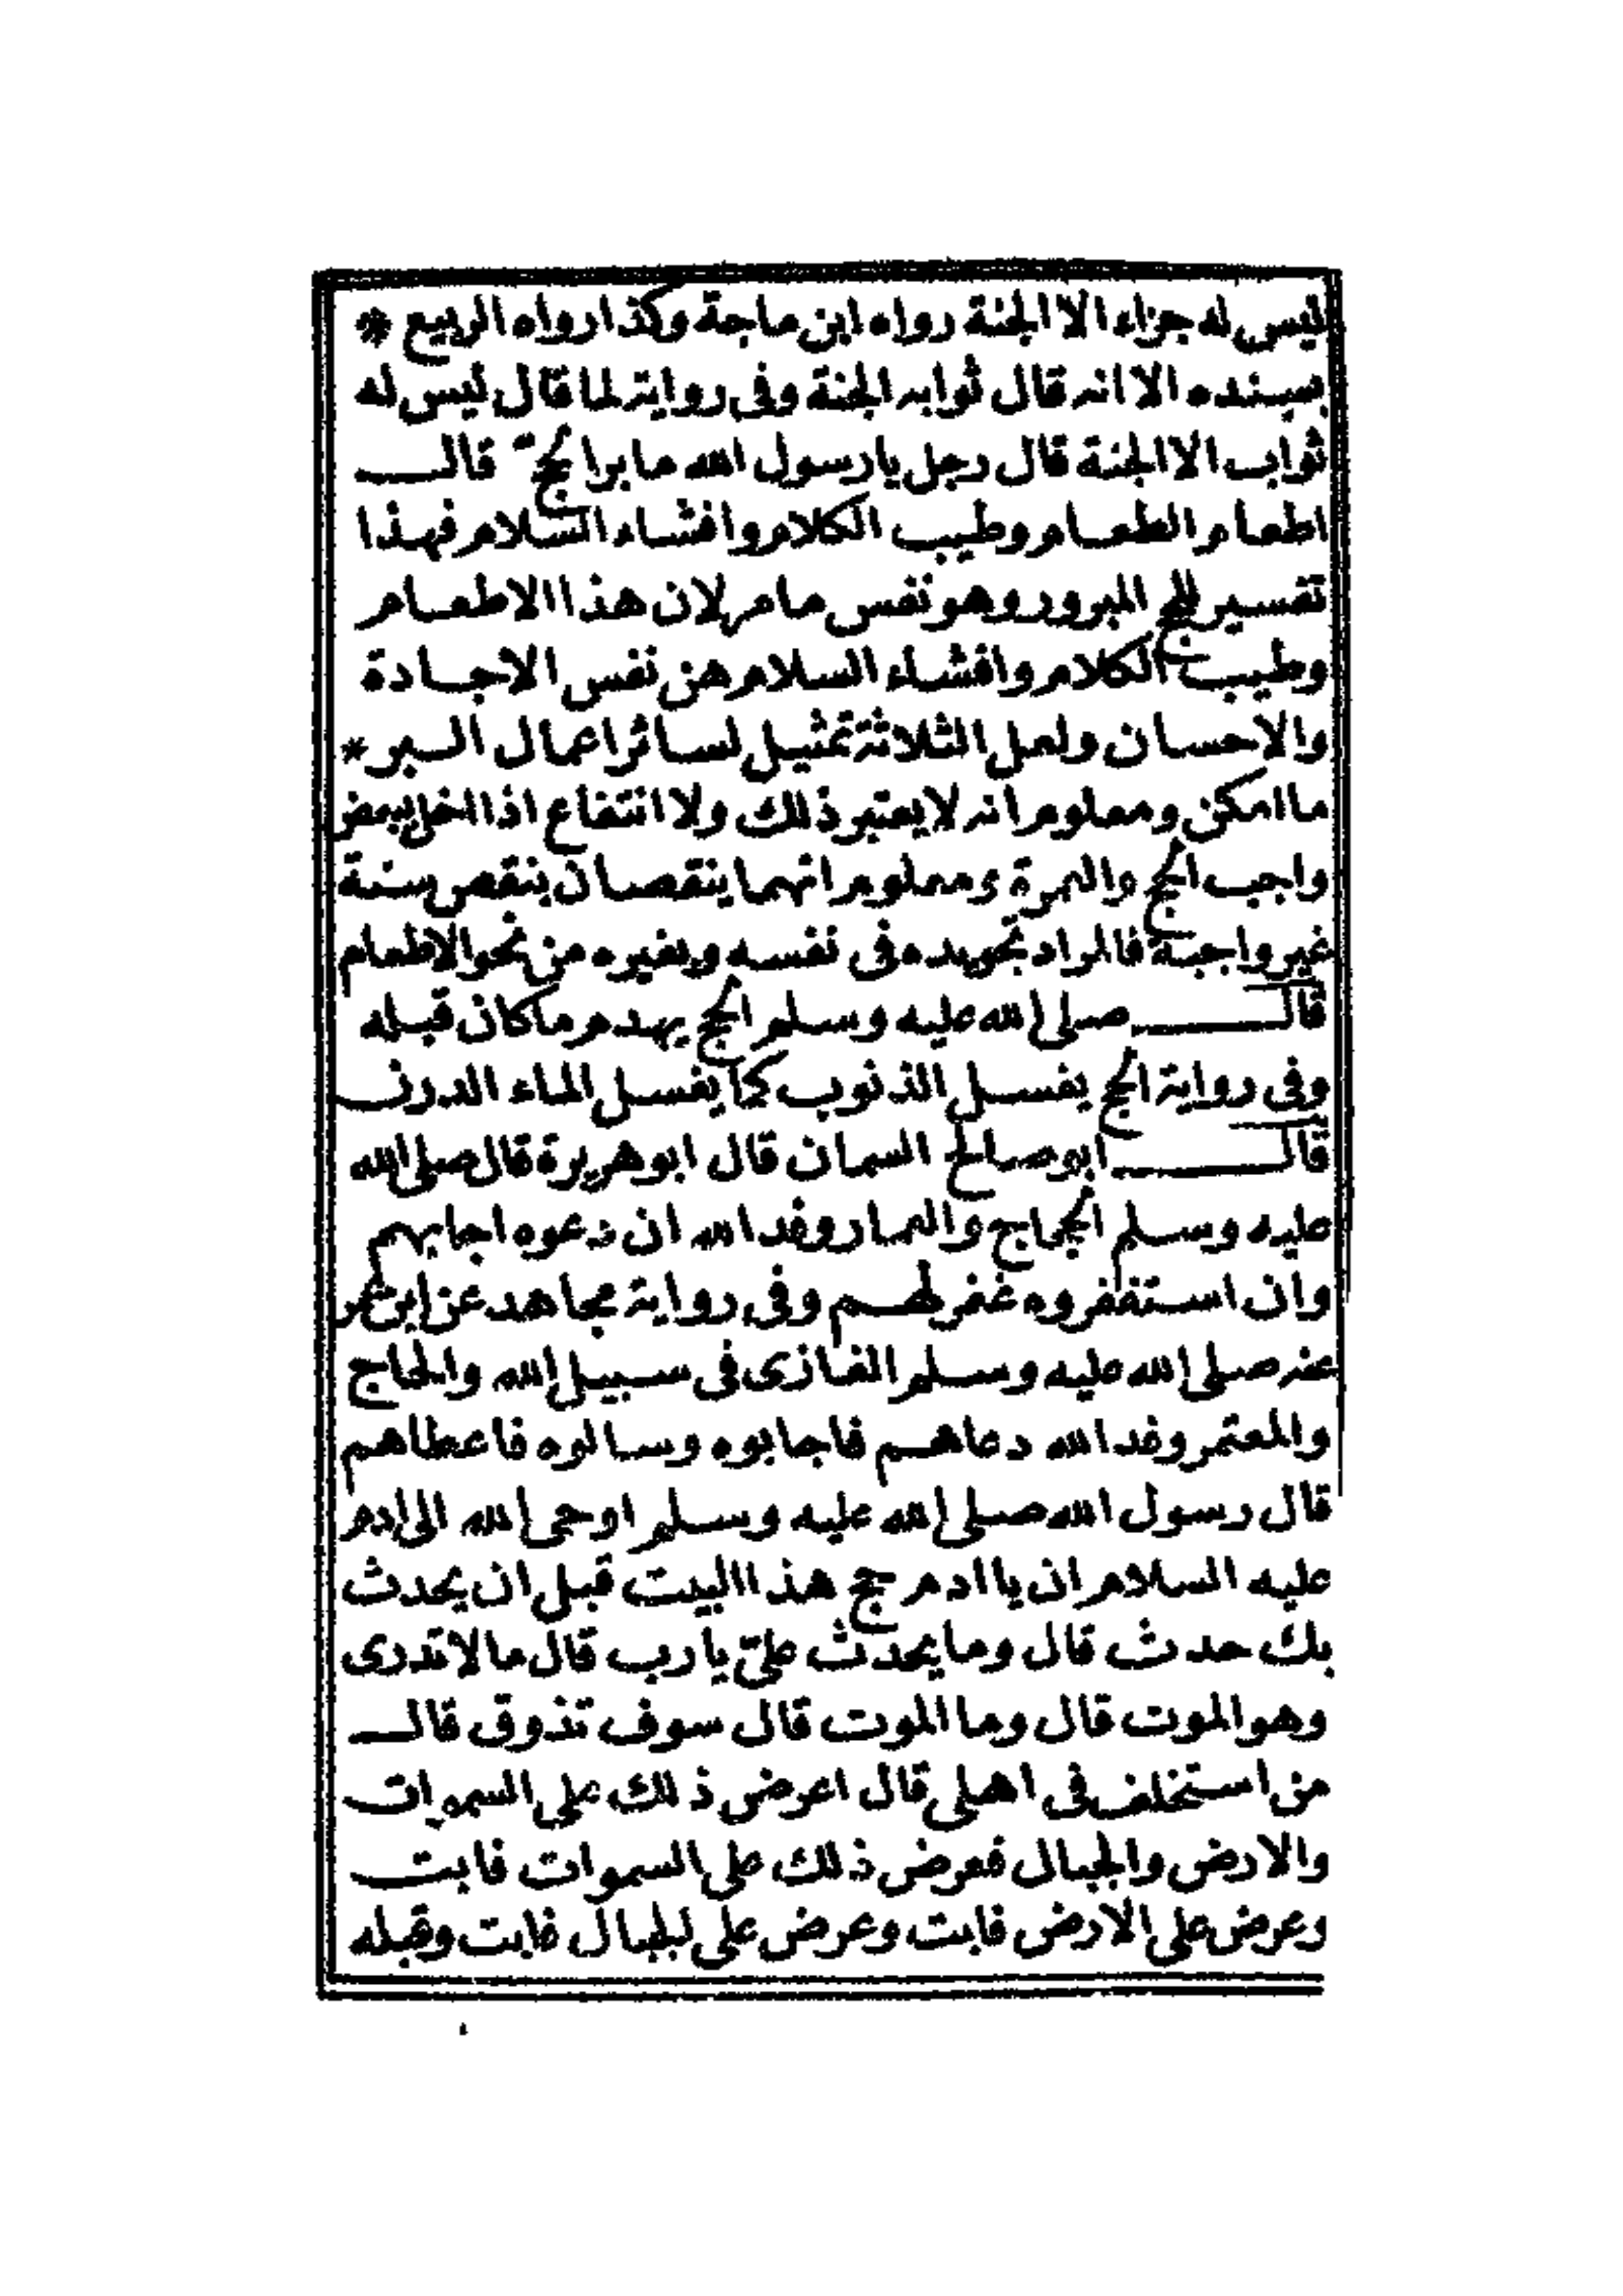 ليس له جزاء الا الجنة رواه ابن ماجة وكذا رواه الربيع *
بسنده الا انه قال ثوابه الجنة وفى رواية لما قال ليس له
ثواب الا الجنة قال رجل يا رسول الله ما بر الحج قال
اطعام الطعام وطيب الكلام وافشاء السلام فهذا
تفسير للحج المبرور وهو نفس ما مر لان هذا الاطعام
وطيب الكلام وافشاء السلام هن نفس الاجادة
والاحسان ولعل الثلاثة تمثيل لسائر اعمال البر *
ما امكن ومعلوم انه لا يعتبر ذلك ولا انتفاع اذا اخل ببعض
واجب الحج والعمرة ومعلوم انهما ينقصان بنقص سنة
غير واجبة فالمراد تجويده فى نفسه وبغيره من نحو الاطعام
قال صلى الله عليه وسلم الحج يهدم ما كان قبله
وفى رواية الحج يغسل الذنوب كما يغسل الماء الدرن
قال ابو صالح السمان قال ابو هريرة قال صلى الله
عليه وسلم الحجاج والعمار وفد الله ان دعوه اجابهم
وان استغفروه غفر لهم وفى رواية مجاهد عن ابن عمر
عنه صلى الله عليه وسلم الغازى فى سبيل الله والحاج
والمعتمر وفد الله دعاهم فاجابوه وسالوه فاعطاهم
قال رسول الله صلى الله عليه وسلم اوحى الله الى ادم
عليه السلام ان يا ادم حج هذا البيت قبل ان يحدث
بك حدث قال وما يحدث علىّ يا رب قال ما لا تدرى
وهو الموت قال وما الموت قال سوف تذوق قال
من استخلف فى اهلى قال اعرض ذلك على السموات
والارض والجبال فعرض ذلك على السموات فابت
وعرض على الارض فابت وعرض على لجبال فابت وقبله